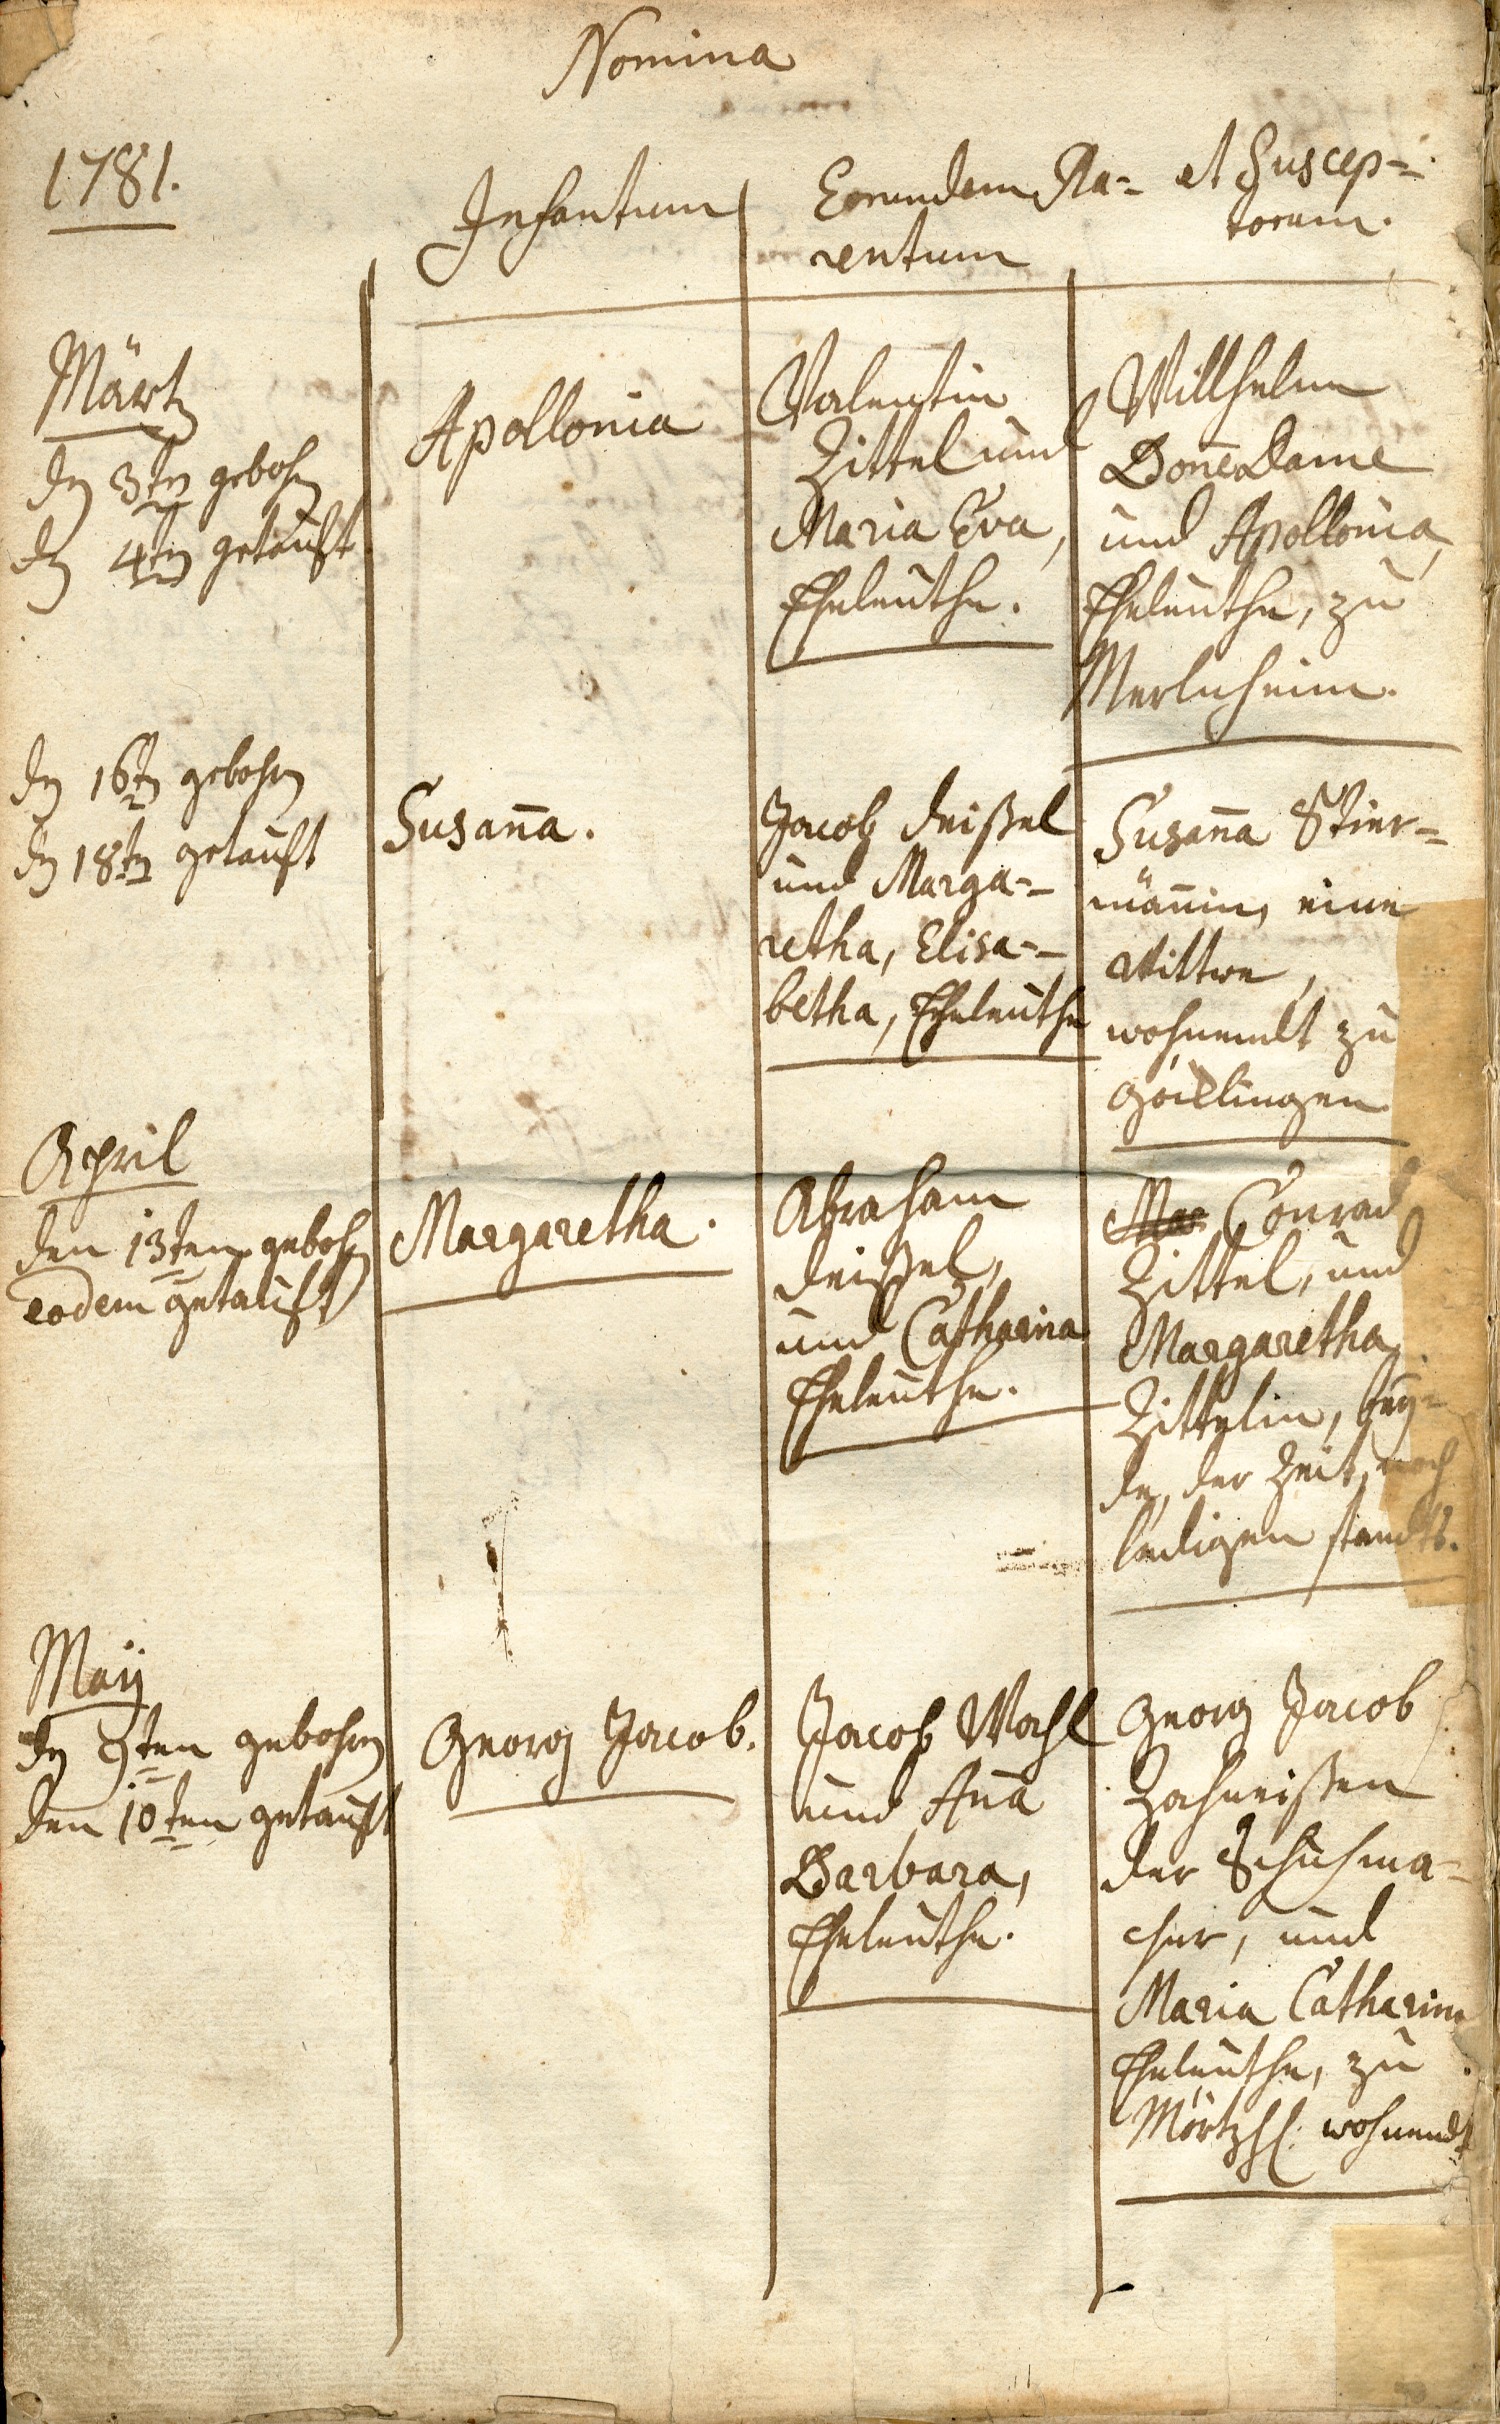 Nomina
1781.
Infantum
Eorundem Pa=
rentum
et Suscep=
torum.
Märtz
dn 3tn gebohrn
dn 4tn getauft
Apollonia
Valentin
Zittel und
Maria Eva,
Eheleuthe.
Willhelm
Bon̄eDame
und Apollonia,
Eheleuthe, zu
Merlnheim.
dn 16tn gebohrn
dn 18tn getauft
Susan̄a.
Jacob Deißel
und Marga=
retha, Elisa=
betha, Eheleuthe
Susan̄a Stier=
män̄in, eine
Wittwe,
wohnendt zu
Göcklingen
April
den 13ten gebohrn
eodem getauft
Margaretha.
Abraham
Deißel,
und Catharina
Eheleuthe.
Conrad
Zittel, und
Margaretha
Zittelin, bey=
de, der Zeit, noch
ledigen standts.
Maij
dn 9ten gebohrn
den 10ten getauft
Georg Jacob.
Jacob Wahl
und An̄a
Barbara,
Eheleuthe.
Georg Jacob
Zahneißen
der Schuhma=
cher, und
Maria Catharina
Eheleuthe, zu
Mörtzh: wohnendt